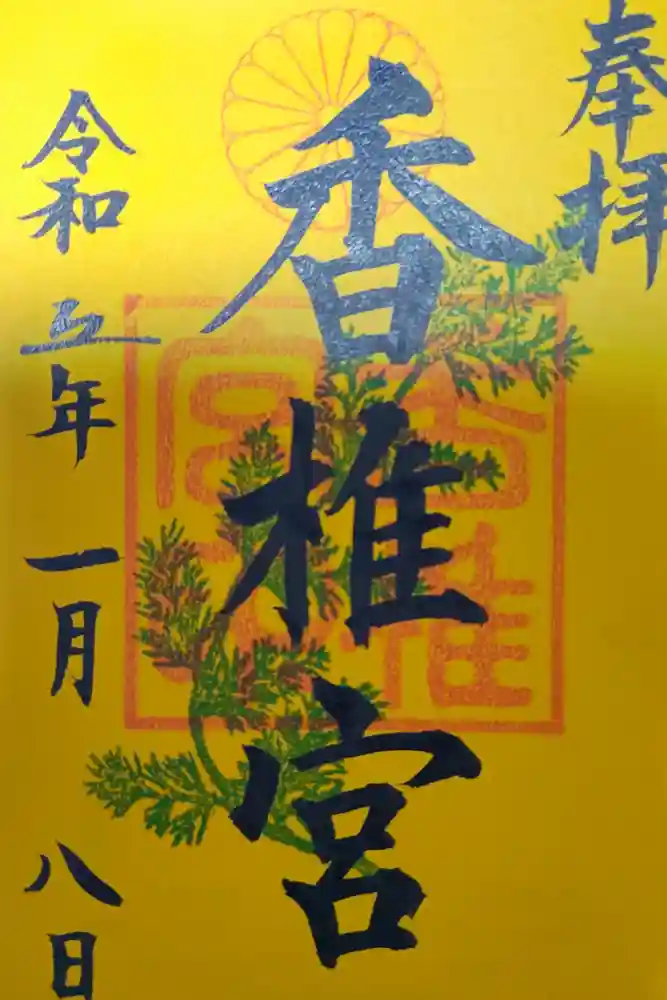 奉拝
香椎宮
令和五年一月八日